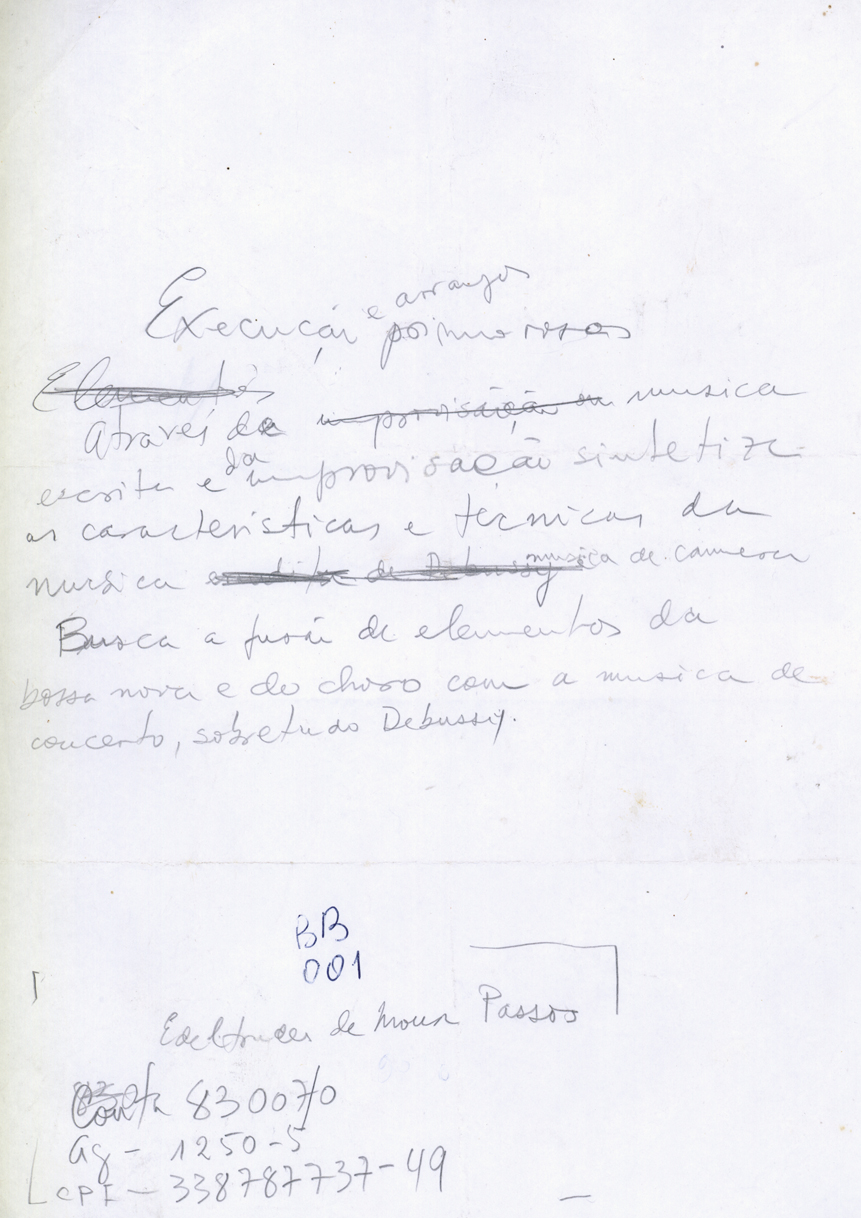 Execução e arranjos
primorosos
Elementos
Através da improvisação ou musica
escrita e da improvisação sintetiza
as características e técnicas da
musica de Debussy musica de camera
Busca a fusão de elementos da
bossa nova e do choro com a musica de
concerto, sobretudo Debussy.
BB
001
de Moura Passos
Conta 83007/0
Ag - 1250-5
CPF - 338787737-49